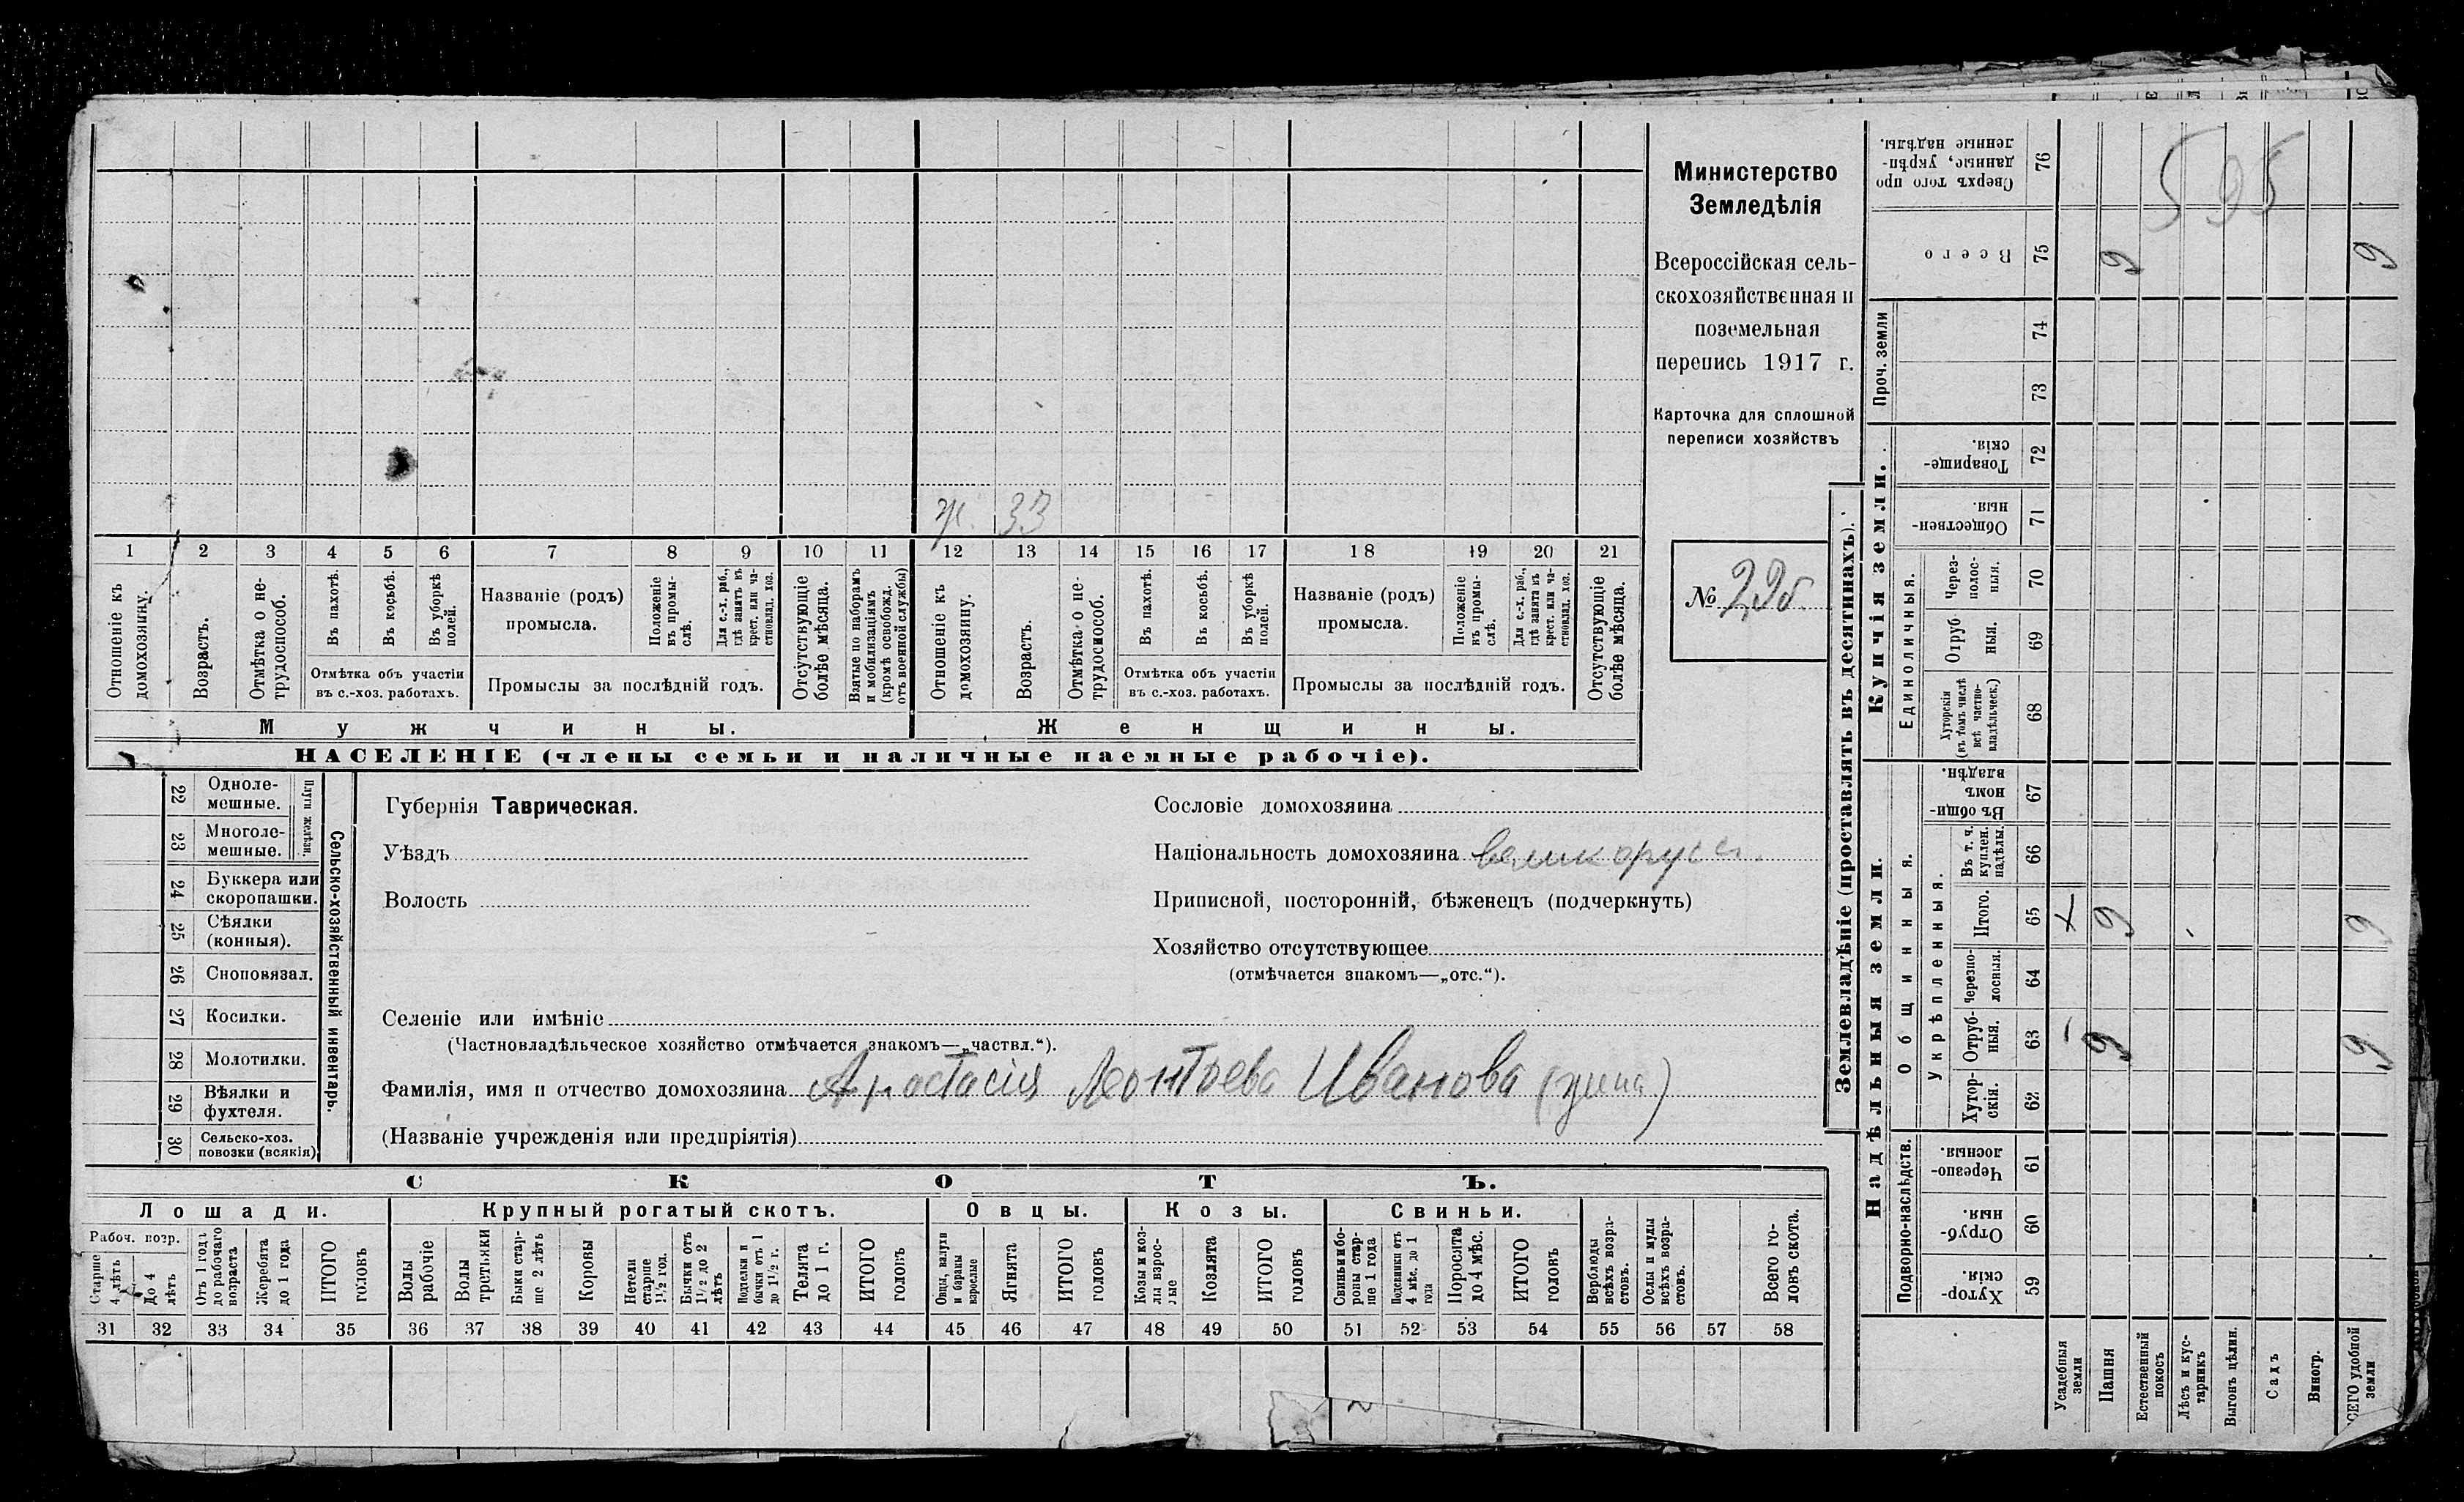 ж. 33
1 2 3 4 5 6 7 8 9 10 11 12 13 14 15 16 17 18 19 20 21
Отношеніе къ домохозяину.
Возрастъ.
Отмѣтка о нетрудоспособ.
Въ пахотѣ.
Въ косьбѣ.
Въ уборкѣ полей.
Отмѣтка объ участіи
въ с.-хоз. работахъ.
Названіе (родъ)
промысла.
Положеніе въ промыслѣ.
Для с.-х. раб., гдѣ занятъ въ крест. или частновлад. хоз.
Промыслы за послѣдній годъ.
Отсутствующіе болѣе мѣсяца.
Взятые по наборамъ и мобилизаціямъ (кромѣ освобожд. отъ военной службы)
Отношеніе къ домохозяину.
Возрастъ.
Отмѣтка о нетрудоспособ.
Въ пахотѣ.
Въ косьбѣ.
Въ уборкѣ полей.
Отмѣтка объ участіи
въ с.-хоз. работахъ.
Названіе (родъ)
промысла.
Положеніе въ промыслѣ.
Для с.-х. раб., гдѣ занята въ крест. или частновлад. хоз.
Промыслы за послѣдній годъ.
Отсутствующіе болѣе мѣсяца.
Мужчины.
Женщины.
НАСЕЛЕНІЕ (члены семьи и наличные наемные рабочіе).
Министерство
Земледѣлія
Всероссійская сель-
скохозяйственная и
поземельная
перепись 1917 г.
Карточка для сплошной
переписи хозяйствъ
№
22 Однолемешные.
23 Многолемешные.
Плуги желѣзн.
24 Буккера или скоропашки.
25 Сѣялки (конныя).
26 Сноповязал.
27 Косилки.
28 Молотилки.
29 Вѣялки и фухтеля.
30 Сельско-хоз. повозки (всякія)
Сельско-хозяйственный инвентарь.
Губернія Таврическая.
Уѣздъ
Волость
Сословіе домохозяина
Національность домохозяина великорусс.
Приписной, посторонній, бѣженецъ (подчеркнуть)
Хозяйство отсутствующее
(отмѣчается знакомъ—„отс.“).
Селеніе или имѣніе
(Частновладѣльческое хозяйство отмѣчается знакомъ—„частвл.“).
Фамилія, имя и отчество домохозяина Анастасія Леонтьева Иванова
(Названіе учрежденія или предпріятія)
СКОТЪ.
Лошади. Крупный рогатый скотъ. Овцы. Козы. Свиньи.
Рабоч. возр.
Старше 4 лѣтъ
До 4 лѣтъ
Отъ 1 года до рабочаго возраста
Жеребята до 1 года
ИТОГО головъ
Волы рабочіе
Волы третьяки
Быки старше 2 лѣтъ
Коровы
Нетели старше 1½ год.
Бычки отъ 1½ до 2 лѣтъ
Подтелки и бычки отъ 1 до 1½ г.
Телята до 1 г.
ИТОГО головъ
Овцы, валухи и бараны взрослые
Ягнята
ИТОГО головъ
Козы и козлы взрослые
Козлята
ИТОГО головъ
Свиньи и боровы старше 1 года
Подсвинки отъ 4 мѣс. до 1 года
Поросята до 4 мѣс.
ИТОГО головъ
Верблюды всѣхъ возрастовъ.
Ослы и мулы всѣхъ возрастовъ.
Всего головъ скота.
31 32 33 34 35 36 37 38 39 40 41 42 43 44 45 46 47 48 49 50 51 52 53 54 55 56 57 58
Землевладѣніе (проставлять въ десятинахъ).
Купчія земли.
Надѣльныя земли.
Сверхъ того проданные, укрѣпленные надѣлы. 76
595
Всего 75 9 9
Проч. земли
74
73
Товарищескія. 72
Общественныя. 71
Единоличныя.
Черезполосныя. 70
Отрубныя. 69
Хуторскія (въ томъ числѣ всѣ частновладѣльческ.) 68
Общинныя.
Въ общинномъ владѣн. 67
Укрѣпленныя.
Въ т. ч. куплен. надѣлы. 66
Итого. 65 х 9 9
Черезполосныя. 64
Отрубныя. 63 9 9
Хуторскія. 62
Подворно-наслѣдств.
Черезполосныя. 61
Отрубныя. 60
Хуторскія. 59
Усадебныя земли
Пашня
Естественный покосъ
Лѣсъ и кустарникъ
Выгонъ цѣлин.
Садъ
Виногр.
СЕГО удобной земли